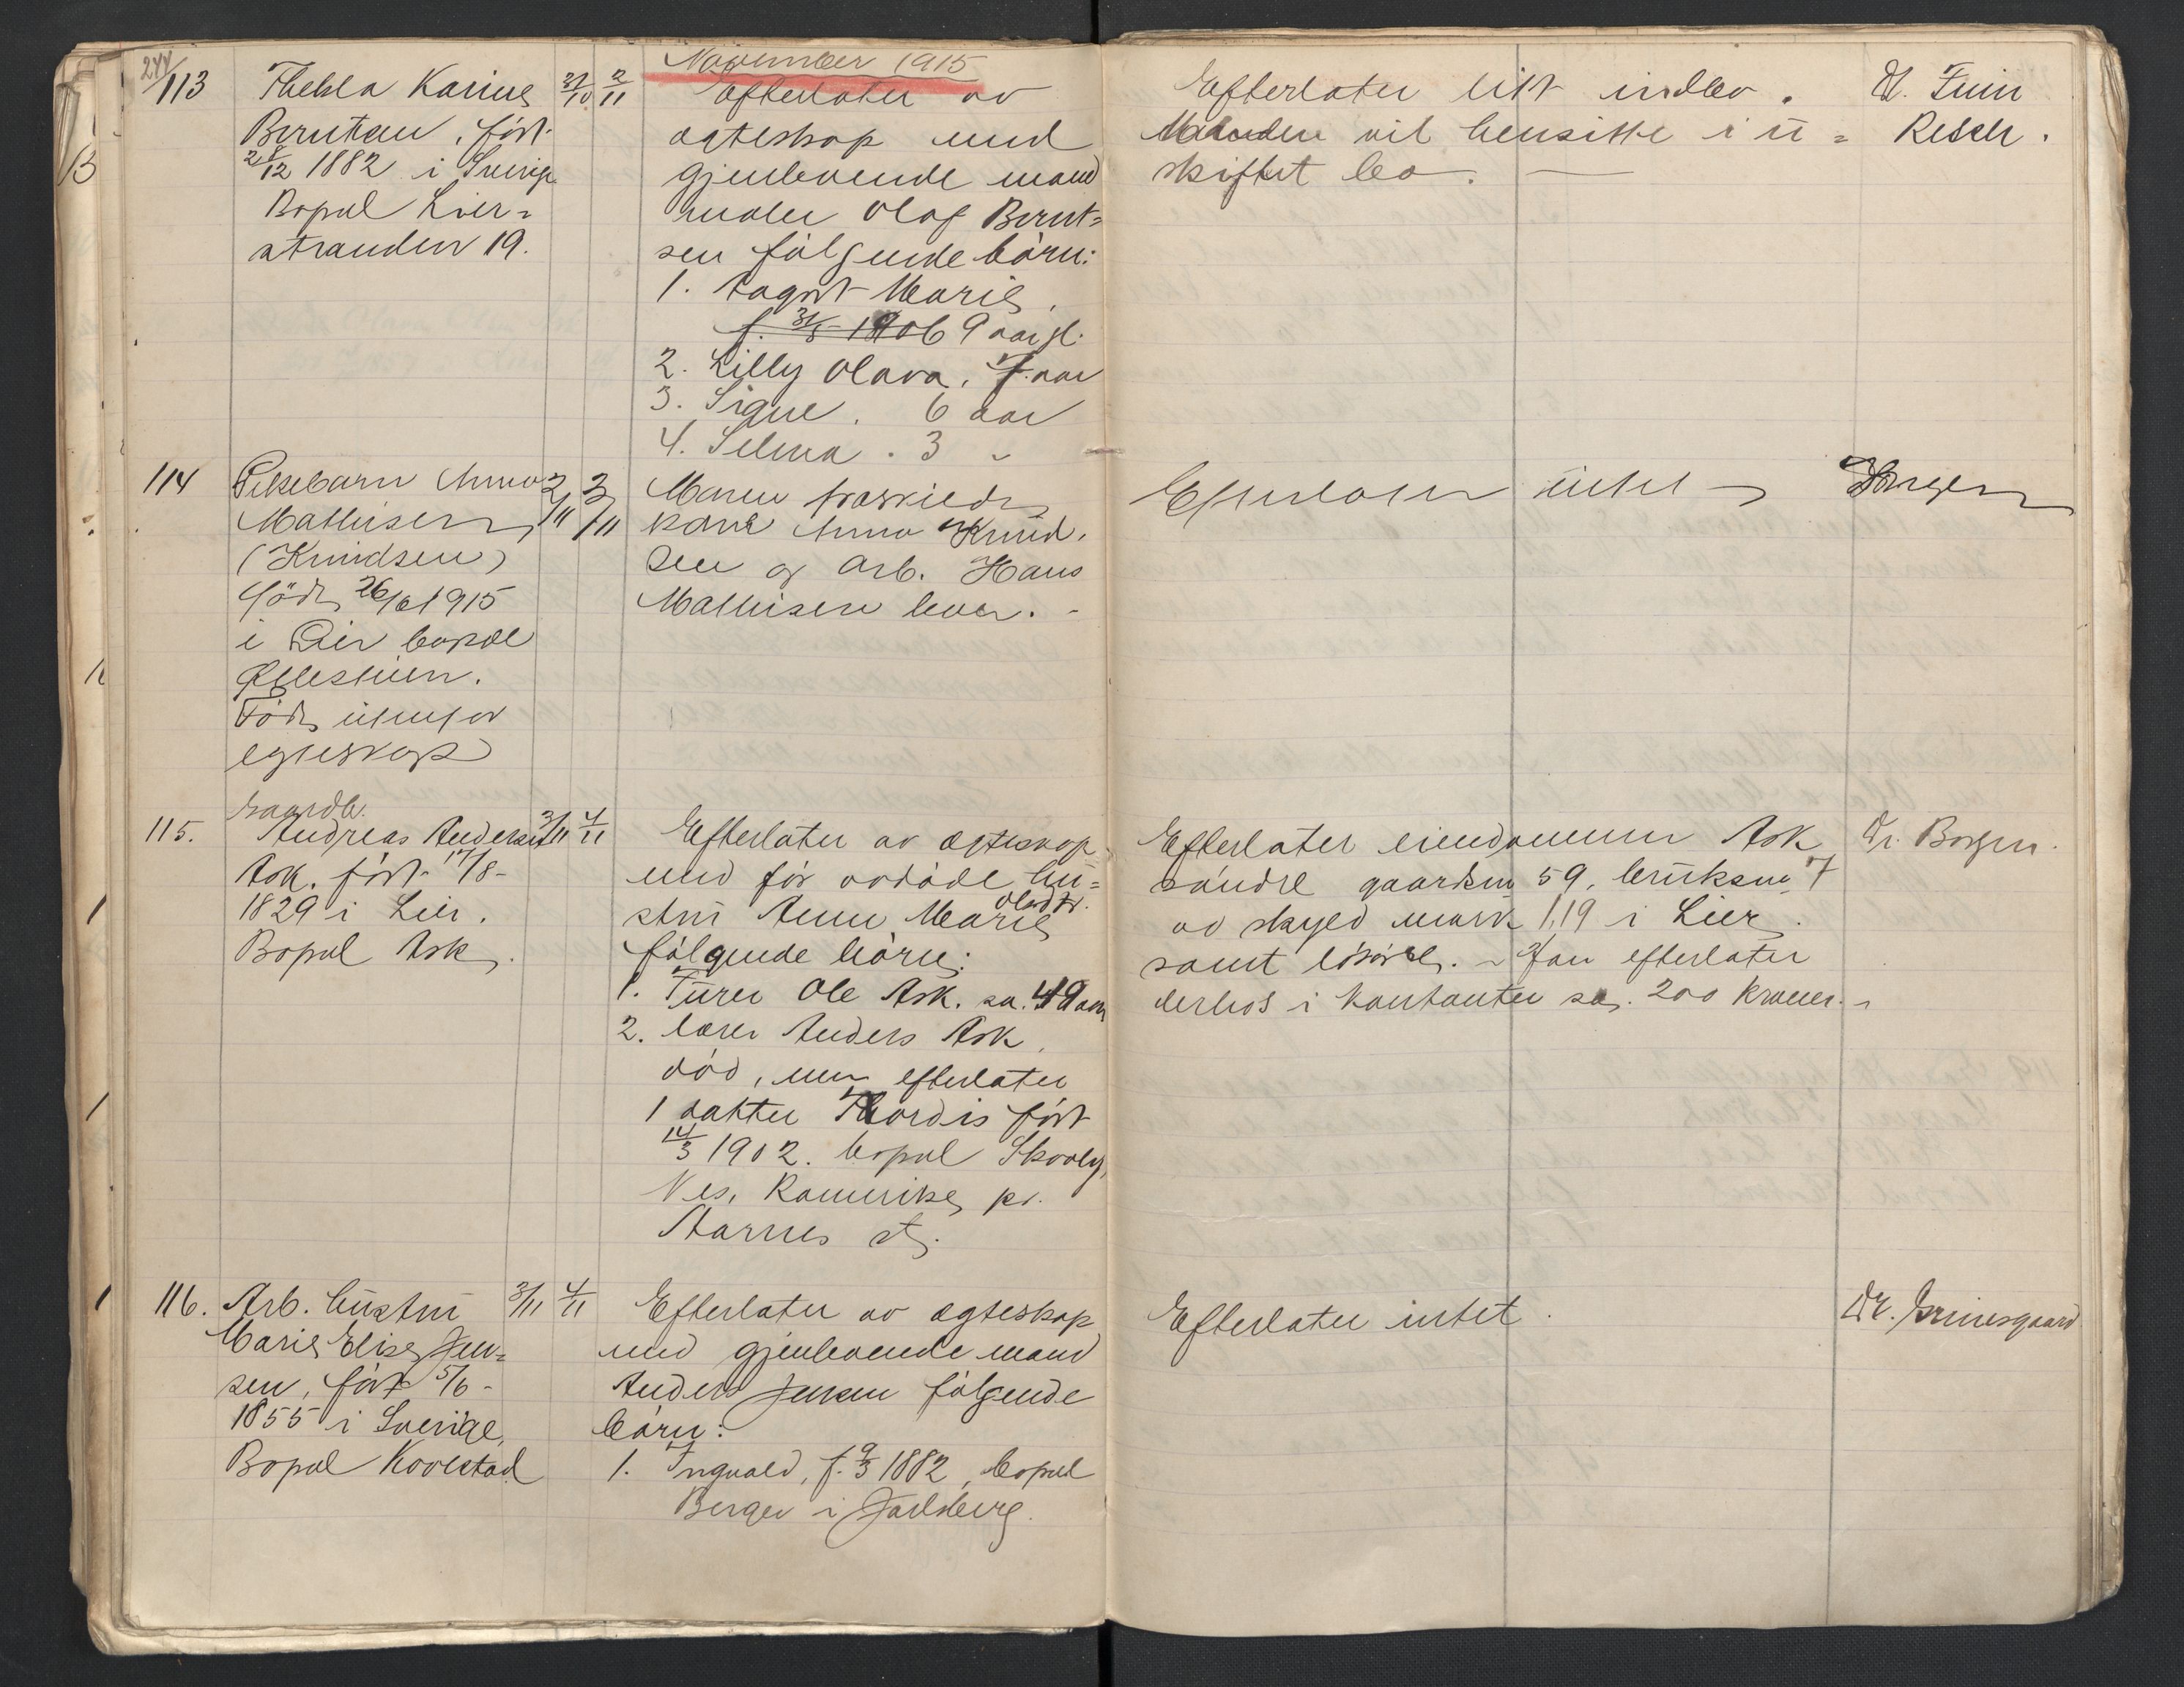 244
November 1915
113
Thekla Karine
Berntsen, født
28/12 1882 i Sverige
Bopæl Lier=
stranden 19.
31/10
2/11
Efterlater av
egteskap med
gjenlevende mand
maler Olaf Bernt=
sen følgende børn:
1. Aagot Marie,
f. 31/5 1906 9 aar gl.
2. Lilly Olava, 7 aar
3. Signe. 6 aar
4. Selma. 3 "
Efterlater litt indbo.
Manden vil hensitte i u=
skiftet bo.
D. Finn
Resch.
114
Pikebarn Anna
Mathisen
(Knudsen)
född 26/6 1915
i Lier bopæl
Eggesluen.
Född utenfor
egteskap
2/11
3/11
Moren fraskilt
kone Anna Knud.
sen og Arb. Hans
Mathisen lever. -
Efterlater intet
Borgen
115.
Gaardbr.
Andreas Andersen
Ask. født 17/8-
1829 i Lier.
Bopæl Ask.
3/11
4/11
Efterlater av egteskap
med før avdøde hu=
stru Anne Marie Olsdtr.
følgende børn:
1. Furer Ole Ask. ca. 49 aar
2. lærer Anders Ask,
død, men efterlater
1 datter Thordis født
14/3 1902. bopæl Skovly,
Nes, Romerike, pr.
Aarnes st.
Efterlater eiendommen Ask
søndre gaardsno 59, bruksno 7
av skyld mark 1,19 i Lier.
samt løsøre. - Han efterlater
derhos i kontanter ca. 200 kroner. -
Dr. Borgen.
116.
Arb. hustru
Marie Elise Jen=
sen, født 5/6-
1855 i Sverige,
Bopæl Kovestad
3/11
4/11
Efterlater av egteskap
med gjenlevende mand
Anders Jensen følgende
børn:
1. Ingvald, f. 9/3 1882, bopæl
Berger i Jarlsberg.
Efterlater intet.
Dr. Grinisgaard